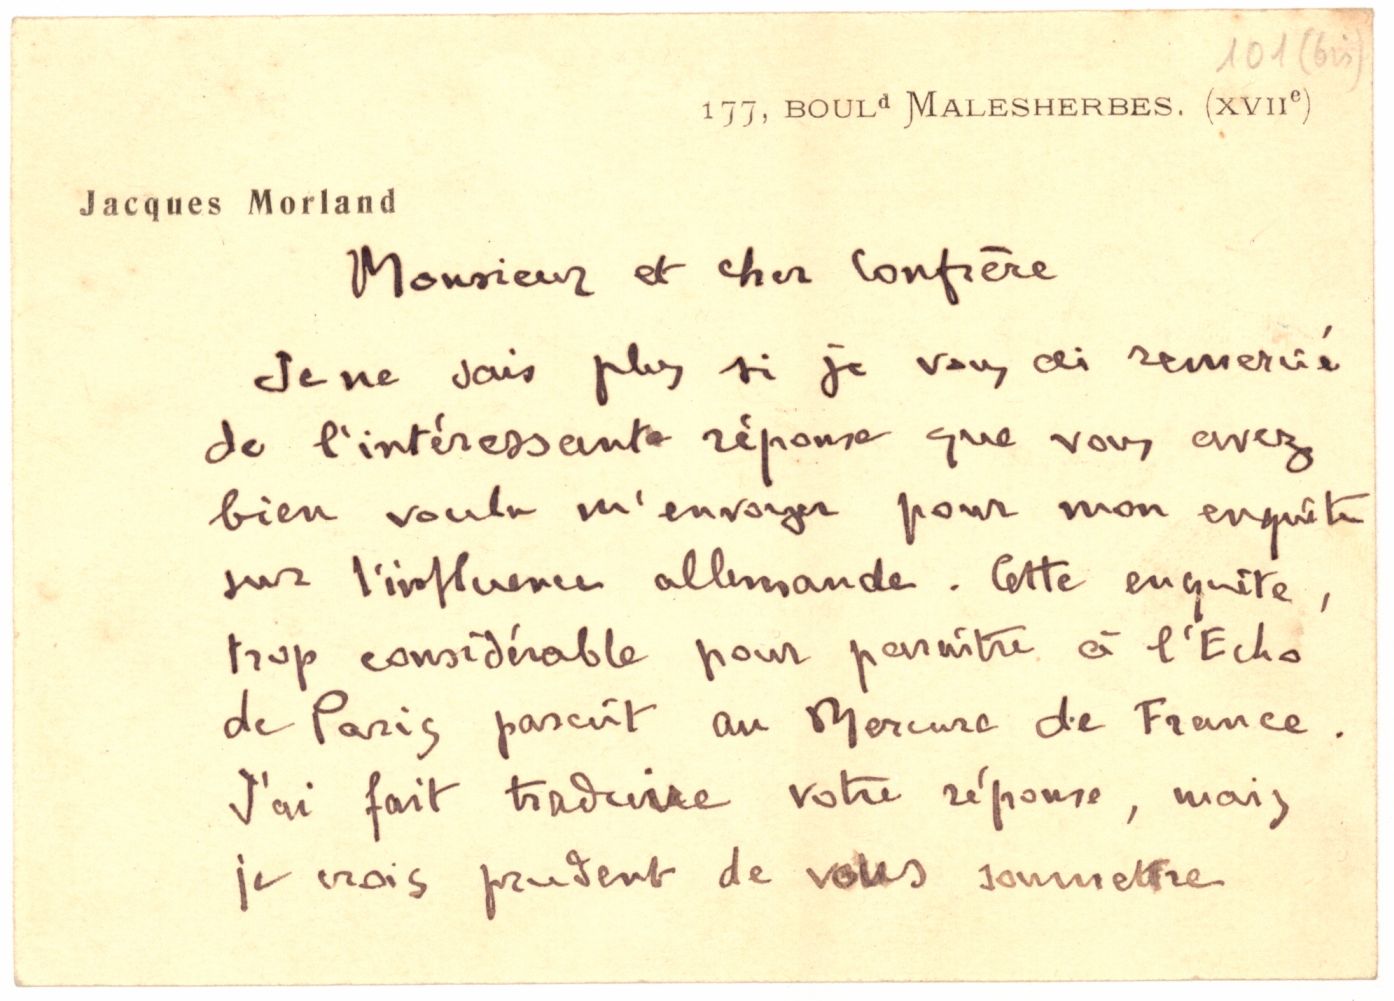 101 (bis)
177, BOULd MALESHERBES. (XVIIe)
Jacques Morland
Monsieur et cher Confrère
Je ne sais plus si je vous ai remercié
de l'intéressante réponse que vous avez
bien voulu m'envoyer pour mon enquête
sur l'influence allemande. Cette enquête,
trop considérable pour paraître à l'Echo
de Paris paraît au Mercure de France.
J'ai fait traduire votre réponse, mais
je crois prudent de vous soumettre